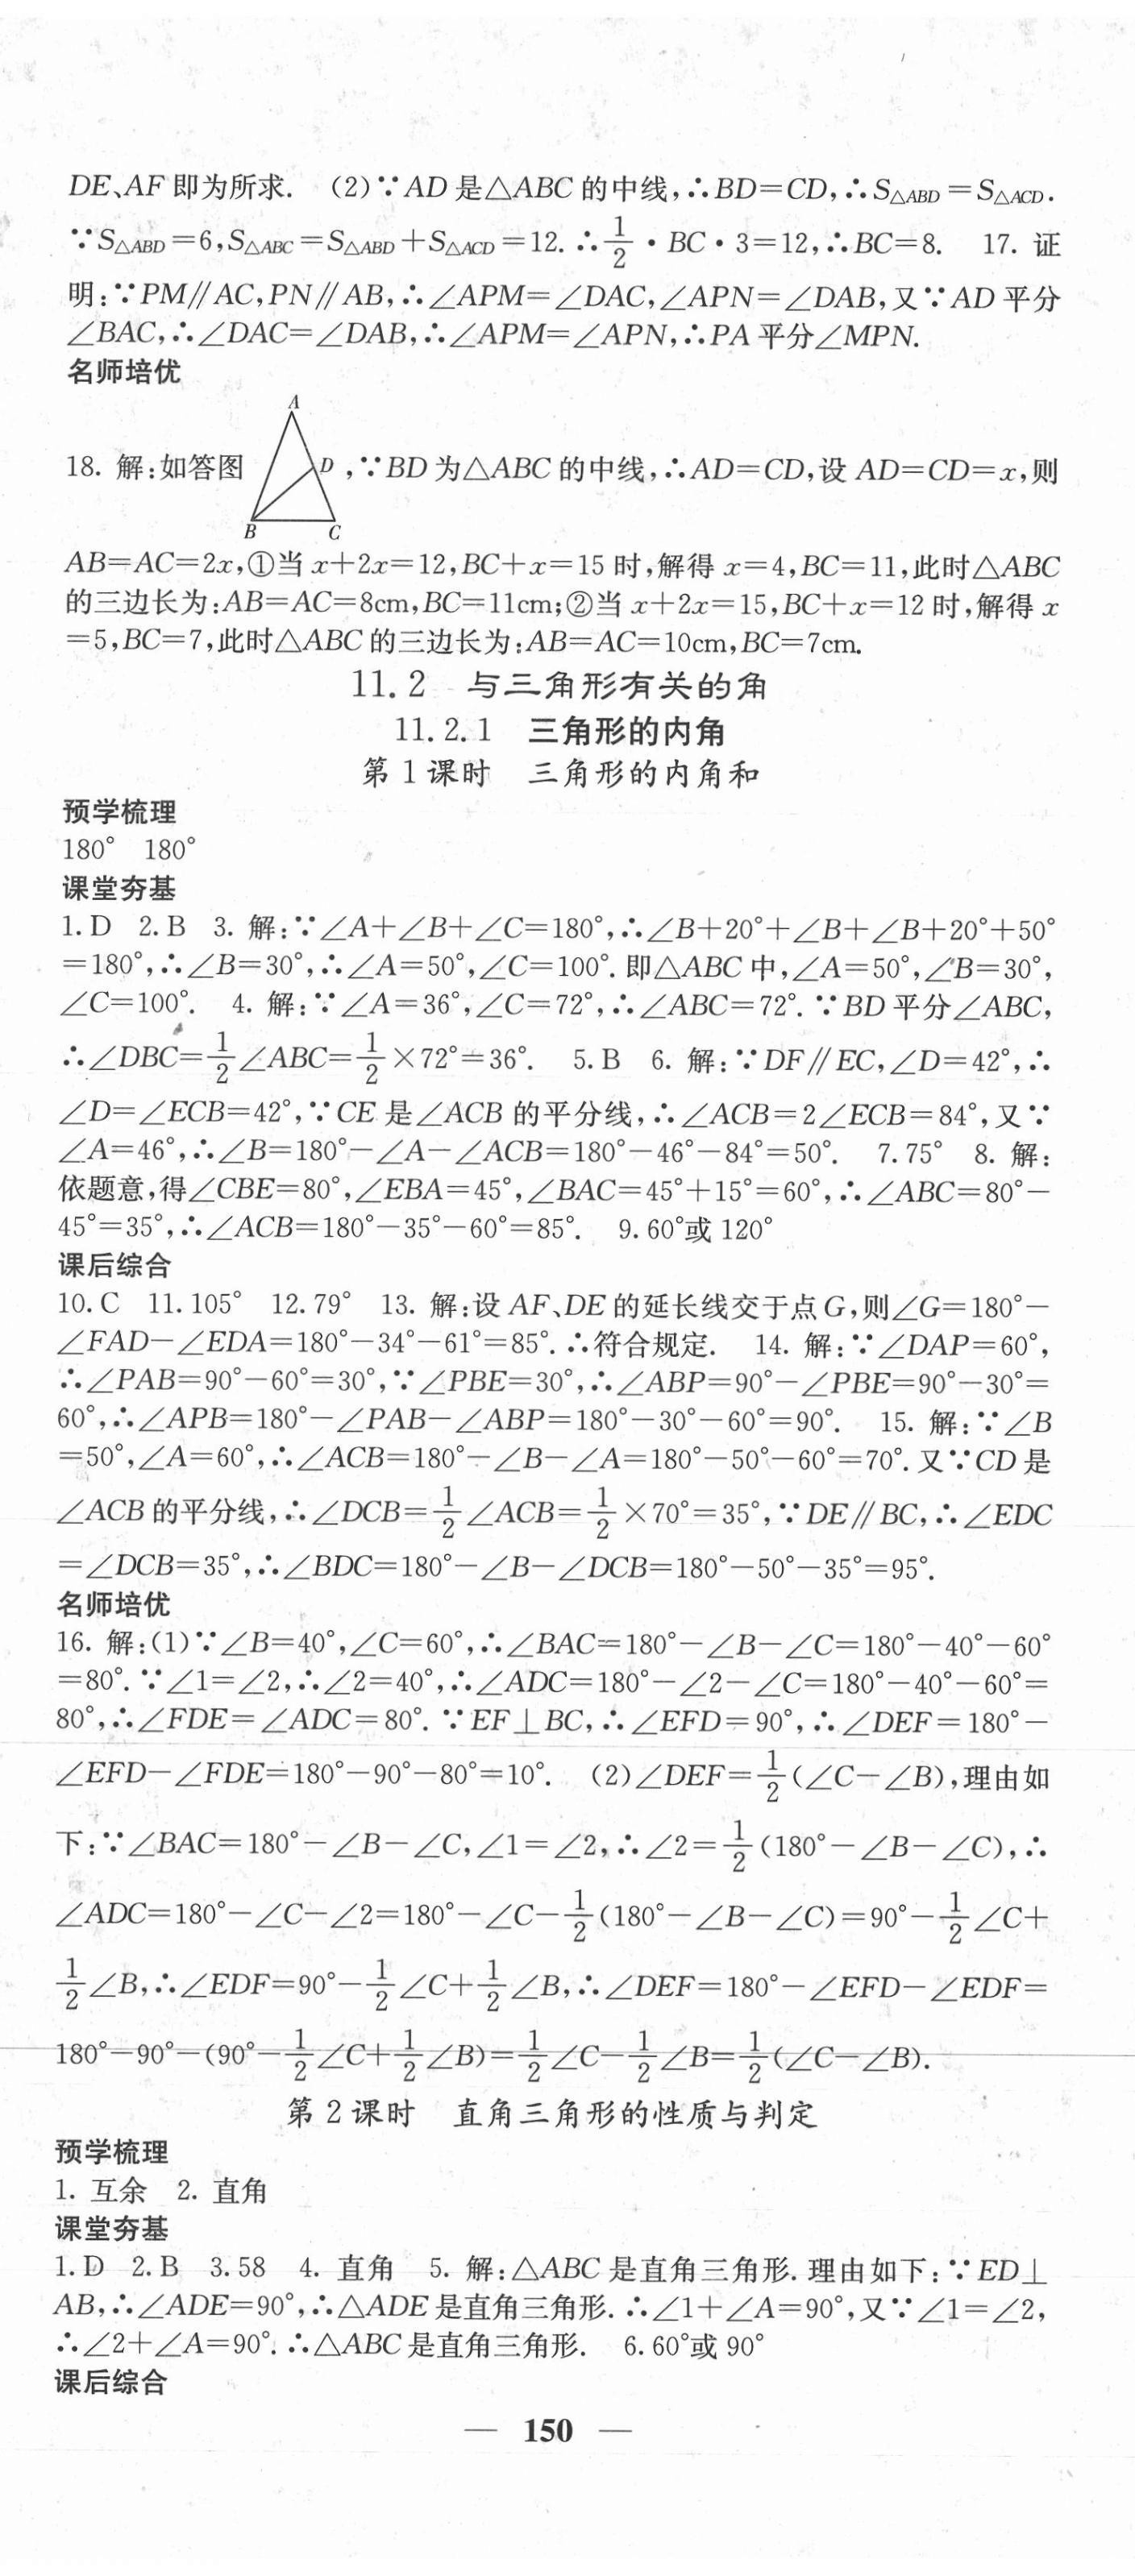 DE、AF 即为所求. (2)∵AD 是△ABC 的中线,∴BD=CD,∴S△ABD=S△ACD.
∵S△ABD=6,S△ABC=S△ABD+S△ACD=12.∴1/2·BC·3=12,∴BC=8. 17. 证
明:∵PM∥AC,PN∥AB,∴∠APM=∠DAC,∠APN=∠DAB,又∵AD 平分
∠BAC,∴∠DAC=∠DAB,∴∠APM=∠APN,∴PA 平分∠MPN.
名师培优
A
18. 解:如答图 D ,∵BD 为△ABC 的中线,∴AD=CD,设 AD=CD=x,则
B C
AB=AC=2x,①当 x+2x=12,BC+x=15 时,解得 x=4,BC=11,此时△ABC
的三边长为:AB=AC=8cm,BC=11cm;②当 x+2x=15,BC+x=12 时,解得 x
=5,BC=7,此时△ABC 的三边长为:AB=AC=10cm,BC=7cm.
11.2 与三角形有关的角
11.2.1 三角形的内角
第 1 课时 三角形的内角和
预学梳理
180° 180°
课堂夯基
1.D 2.B 3. 解:∵∠A+∠B+∠C=180°,∴∠B+20°+∠B+∠B+20°+50°
=180°,∴∠B=30°,∴∠A=50°,∠C=100°.即△ABC 中,∠A=50°,∠B=30°,
∠C=100°. 4. 解:∵∠A=36°,∠C=72°,∴∠ABC=72°.∵BD 平分∠ABC,
∴∠DBC=1/2∠ABC=1/2×72°=36°. 5.B 6. 解:∵DF∥EC,∠D=42°,∴
∠D=∠ECB=42°,∵CE 是∠ACB 的平分线,∴∠ACB=2∠ECB=84°,又∵
∠A=46°,∴∠B=180°-∠A-∠ACB=180°-46°-84°=50°. 7.75° 8. 解:
依题意,得∠CBE=80°,∠EBA=45°,∠BAC=45°+15°=60°,∴∠ABC=80°-
45°=35°,∴∠ACB=180°-35°-60°=85°. 9.60°或 120°
课后综合
10.C 11.105° 12.79° 13. 解:设 AF、DE 的延长线交于点 G,则∠G=180°-
∠FAD-∠EDA=180°-34°-61°=85°.∴符合规定. 14. 解:∵∠DAP=60°,
∴∠PAB=90°-60°=30°,∵∠PBE=30°,∴∠ABP=90°-∠PBE=90°-30°=
60°,∴∠APB=180°-∠PAB-∠ABP=180°-30°-60°=90°. 15. 解:∵∠B
=50°,∠A=60°,∴∠ACB=180°-∠B-∠A=180°-50°-60°=70°.又∵CD 是
∠ACB 的平分线,∴∠DCB=1/2∠ACB=1/2×70°=35°,∵DE∥BC,∴∠EDC
=∠DCB=35°,∴∠BDC=180°-∠B-∠DCB=180°-50°-35°=95°.
名师培优
16. 解:(1)∵∠B=40°,∠C=60°,∴∠BAC=180°-∠B-∠C=180°-40°-60°
=80°.∵∠1=∠2,∴∠2=40°,∴∠ADC=180°-∠2-∠C=180°-40°-60°=
80°,∴∠FDE=∠ADC=80°.∵EF⊥BC,∴∠EFD=90°,∴∠DEF=180°-
∠EFD-∠FDE=180°-90°-80°=10°. (2)∠DEF=1/2(∠C-∠B),理由如
下:∵∠BAC=180°-∠B-∠C,∠1=∠2,∴∠2=1/2(180°-∠B-∠C),∴
∠ADC=180°-∠C-∠2=180°-∠C-1/2(180°-∠B-∠C)=90°-1/2∠C+
1/2∠B,∴∠EDF=90°-1/2∠C+1/2∠B,∴∠DEF=180°-∠EFD-∠EDF=
180°-90°-(90°-1/2∠C+1/2∠B)=1/2∠C-1/2∠B=1/2(∠C-∠B).
第 2 课时 直角三角形的性质与判定
预学梳理
1. 互余 2. 直角
课堂夯基
1.D 2.B 3.58 4. 直角 5. 解:△ABC 是直角三角形.理由如下:∵ED⊥
AB,∴∠ADE=90°,∴△ADE 是直角三角形.∴∠1+∠A=90°,又∵∠1=∠2,
∴∠2+∠A=90°.∴△ABC 是直角三角形. 6.60°或 90°
课后综合
— 150 —